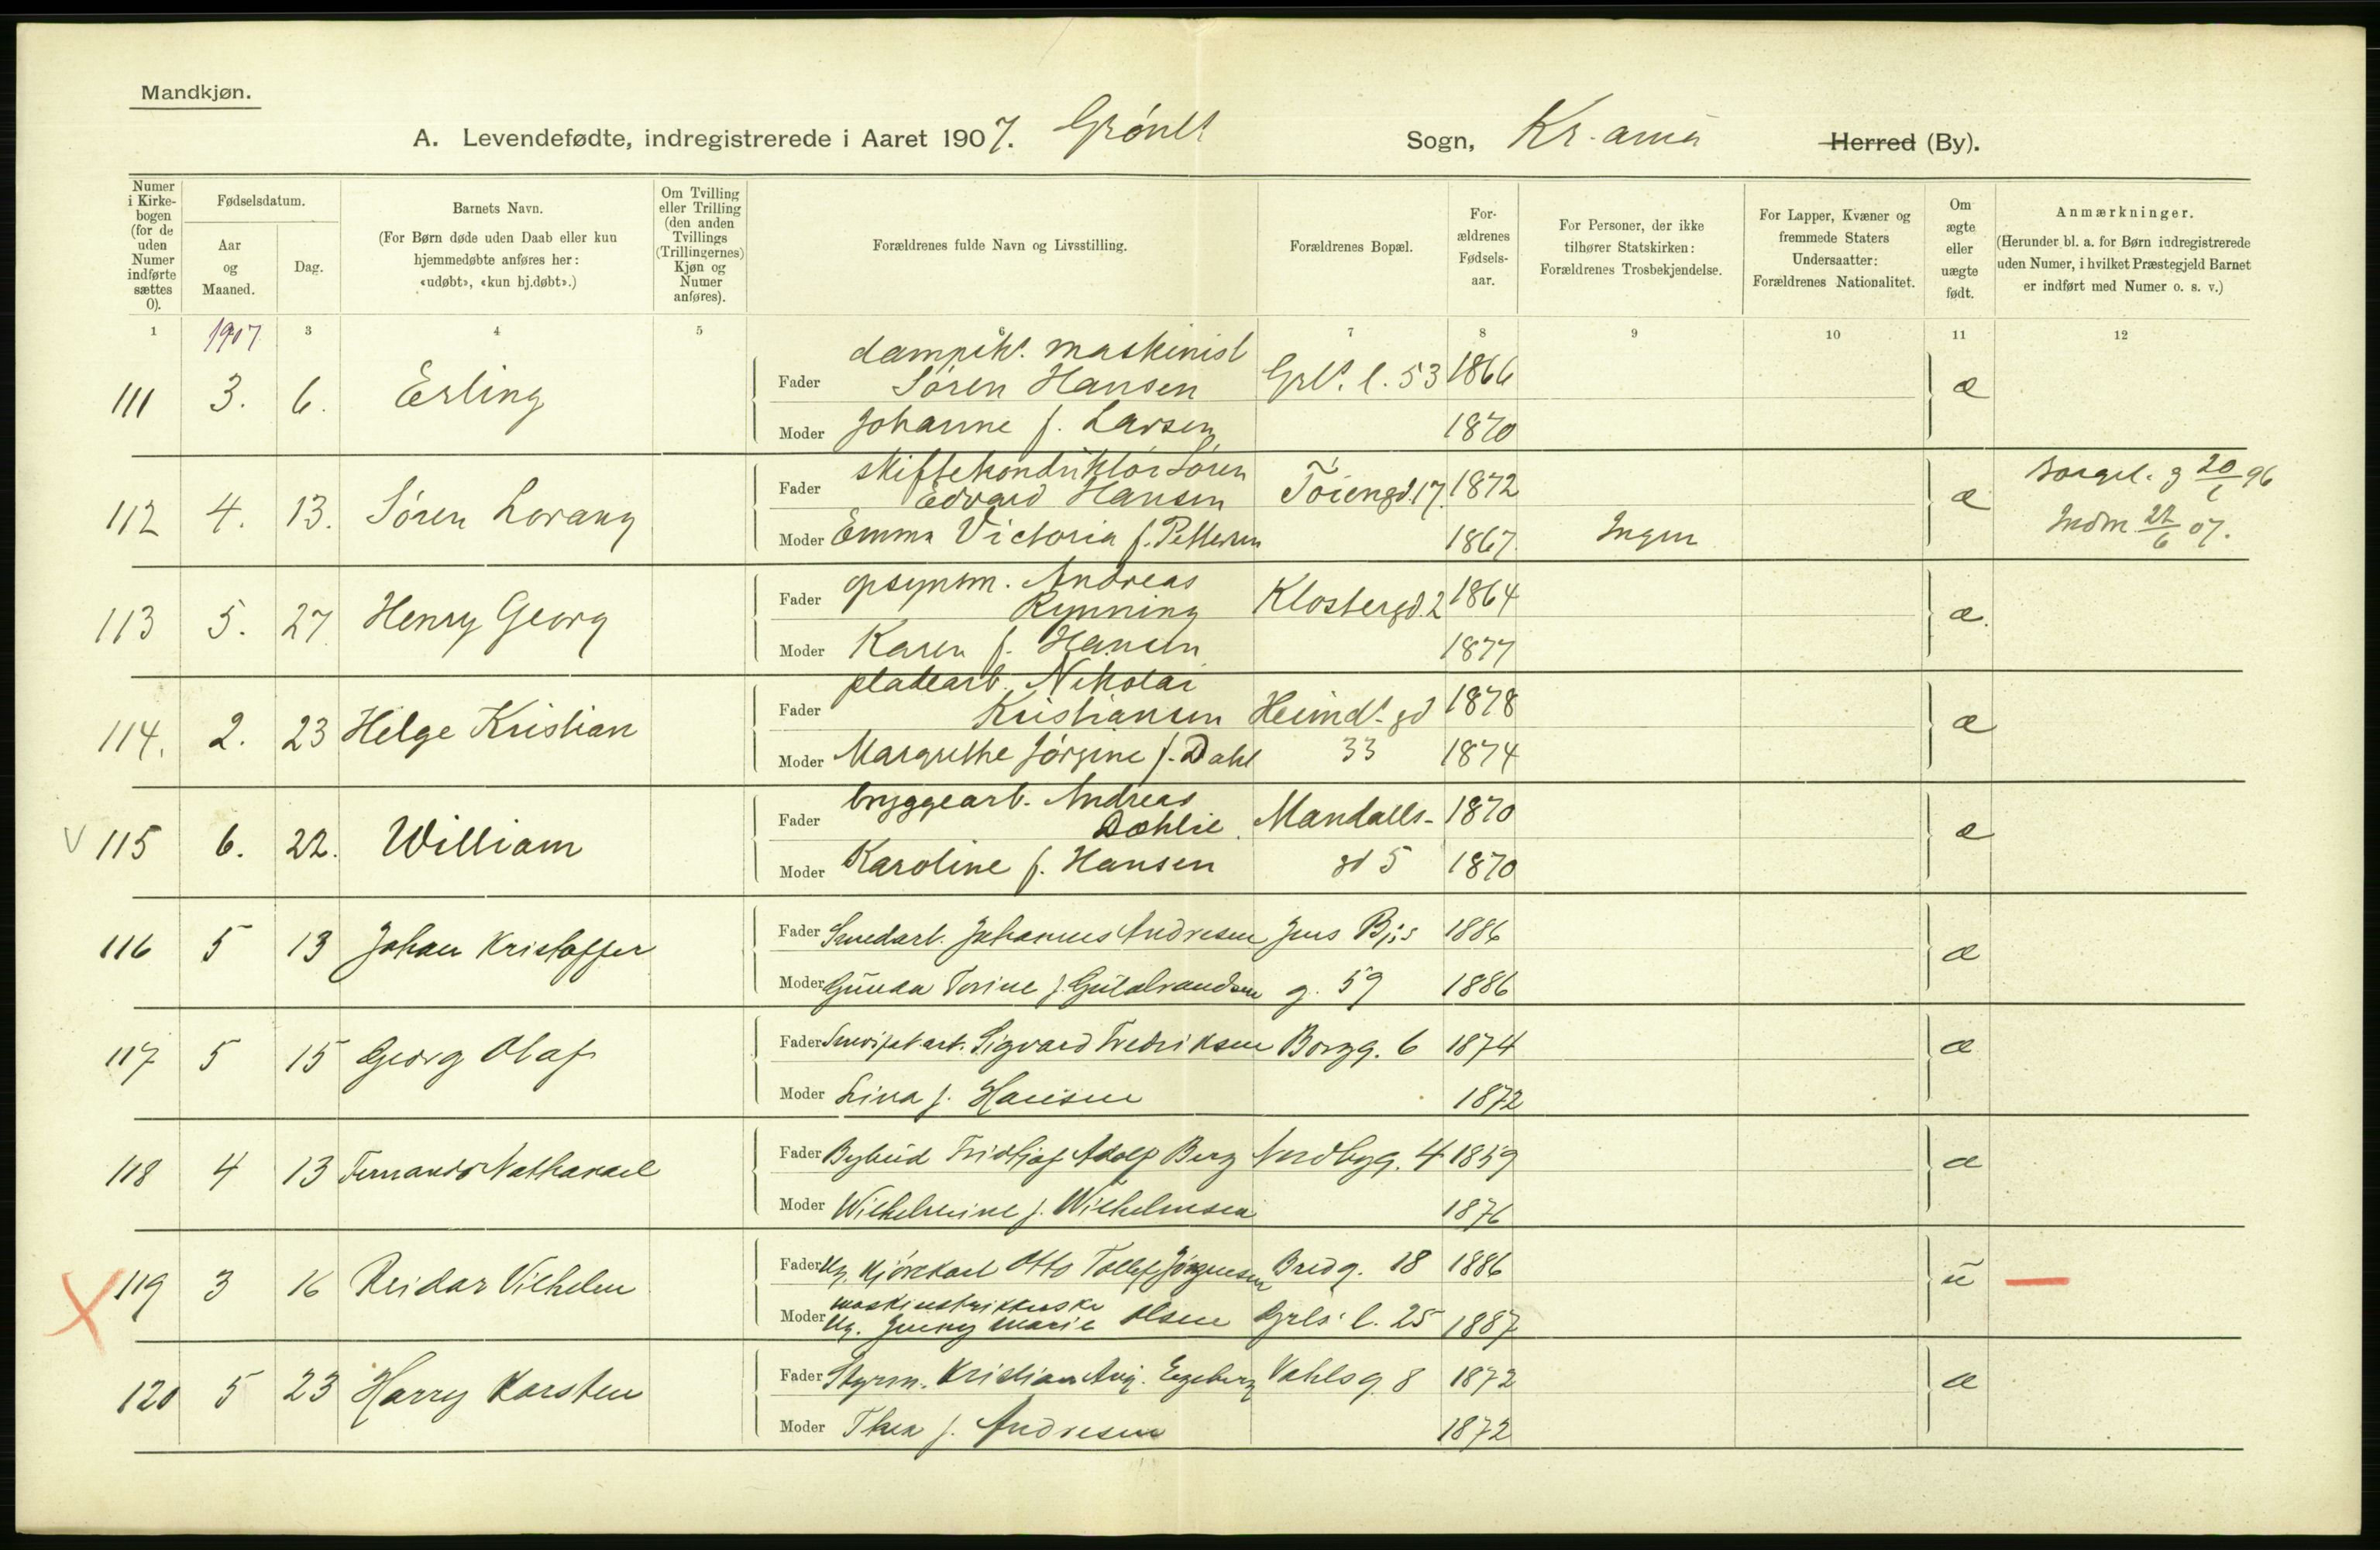 Mandkjøn.
A. Levendefødte, indregistrerede i Aaret 1907. Grønl. Sogn, Kr.ania Herred (By).
Numer i Kirkebogen (for de uden Numer indførte sættes 0).
Fødselsdatum.
Aar og Maaned.
Dag.
Barnets Navn.
(For Børn døde uden Daab eller kun hjemmedøbte anføres her: «udøbt», «kun hj.døbt».)
Om Tvilling eller Trilling (den anden Tvillings (Trillingernes) Kjøn og Numer anføres).
Forældrenes fulde Navn og Livsstilling.
Forældrenes Bopæl.
Forældrenes Fødselsaar.
For Personer, der ikke tilhører Statskirken: Forældrenes Trosbekjendelse.
For Lapper, Kvæner og fremmede Staters Undersaatter: Forældrenes Nationalitet.
Om ægte eller uægte født.
Anmærkninger.
(Herunder bl. a. for Børn indregistrerede uden Numer, i hvilket Præstegjeld Barnet er indført med Numer o. s. v.)
1 1907 3 4 5 6 7 8 9 10 11 12
dampsk. maskinist
111 3. 6. Erling Fader Søren Hansen Grl. l. 53 1866 æ
Moder Johanne f. Larsen 1870
skiftekonduktør Søren
112 4. 13. Søren Lorang Fader Edvard Hansen Tøiengd. 17. 1872 æ Borgel. 3 20/6 96
Moder Emma Victoria f. Pettersen 1867. Ingen Indm 22/6 07.
opsynsm. Andreas
113 5. 27. Henry Georg Fader Rynning Klostergd. 2 1864 æ.
Moder Karen f. Hansen 1877
pladearb. Nikolai
114. 2. 23 Helge Kristian Fader Kristiansen Heimd. gd 1878 æ
Moder Margrethe Jørgine f. Dahl 33 1874
bryggearb. Andreas
V 115 6. 22. William Fader Dæhlie. Mandalls- 1870 æ
Moder Karoline f. Hansen gd 5 1870
116 5 13 Johan Kristoffer Fader Smedarb. Johannes Andresen Jens Bjs 1886 æ
Moder Gunda Torine f. Gulbrandsen g. 59 1886
117 5 15 Georg Olaf Fader Sigvard Fredriksen Borgg. 6 1874 æ
Moder Lina f. Hansen 1872
118 4 13 Fernando Nathanael Fader Bybud Fridtjof Adolf Berg Nordbyg. 4 1859 æ
Moder Wilhelmine f. Wilhelmsen 1876
X 119 3 16 Reidar Vilhelm Fader Ug. Kjørekarl Otto Tollef Jørgensen Bredg. 18 1886 u —
maskinstrikkerske
Moder Ug. Jenny Marie Olsen Grls. l. 25 1887
120 5 23 Harry Karsten Fader Styrm. Kristian Aug. Engeberg Vahlsg. 8 1872 æ
Moder Thea f. Andresen 1872